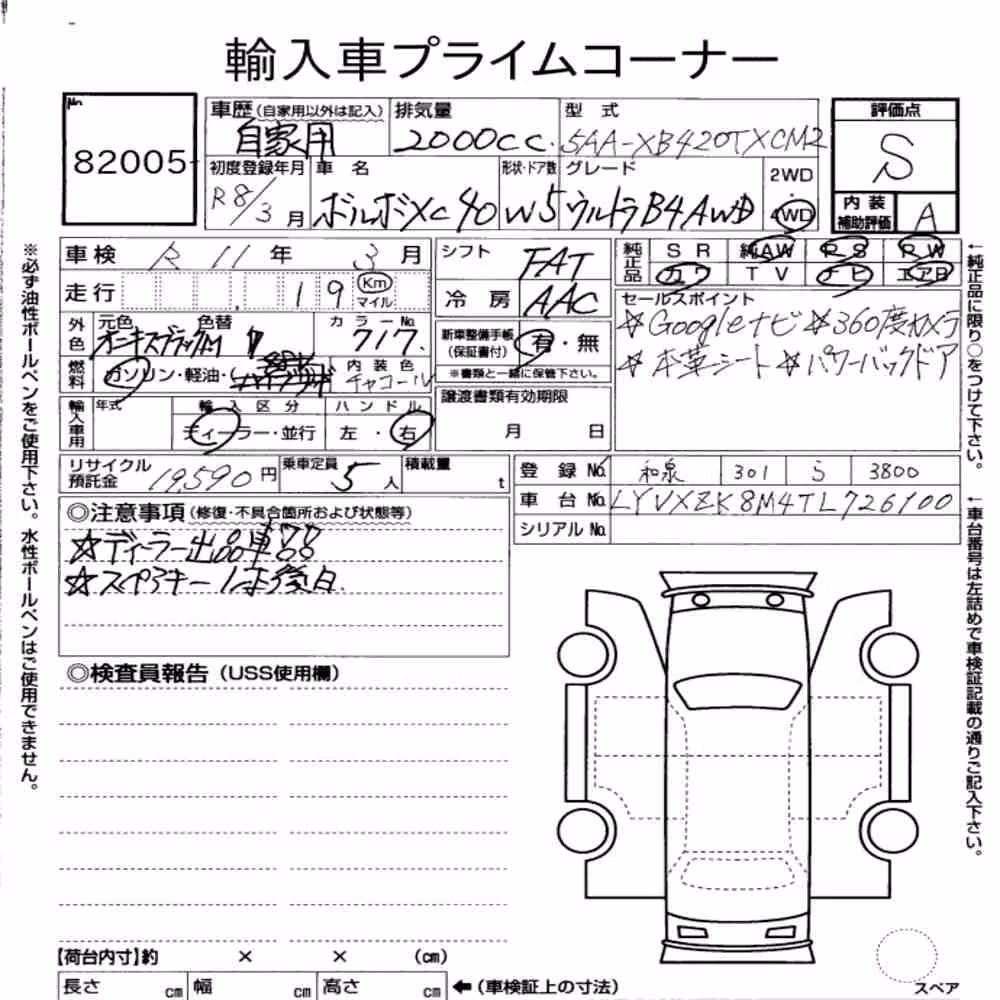 輸入車プライムコーナー
No.
82005
車歴(自家用以外は記入) 排気量 型式 評価点
自家用 2000cc. 5AA-XB420TXCM2 S
初度登録年月 車名 形状・ドア数 グレード 2WD・4WD
R8/3月 ボルボXC40 W5 ウルトラB4AWD
内装補助評価 A
車検 R 11年 3月 シフト FAT
純正品 SR 純AW RS RW
カワ TV ナビ エアB
走行 19 Km マイル 冷房 AAC
セールスポイント
☆Googleナビ ☆360度カメラ
☆本革シート ☆パワーバックドア
外色 元色 色替 カラーNo.
オニキスブラックM 717
新車整備手帳(保証書付) 有・無
※書類と一緒に保管下さい。
燃料 ガソリン・軽油・( 内装色 チャコール
譲渡書類有効期限
月 日
輸入車用 年式 輸入区分 ハンドル
ディーラー・並行 左・右
リサイクル預託金 19,590円 乗車定員 5人 積載量 t
登録No. 和泉 301 ら 3800
車台No. LYVXZK8M4TL726100
シリアルNo.
◎注意事項(修復・不具合箇所および状態等)
☆ディーラー出品車
☆スペアキー1本後日.
◎検査員報告(USS使用欄)
【荷台内寸】約 × × (cm)
長さ cm 幅 cm 高さ cm ←(車検証上の寸法)
スペア
※必ず油性ボールペンをご使用下さい。水性ボールペンはご使用できません。
←純正品に限り○をつけて下さい。
←車台番号は左詰めで車検証記載の通りご記入下さい。